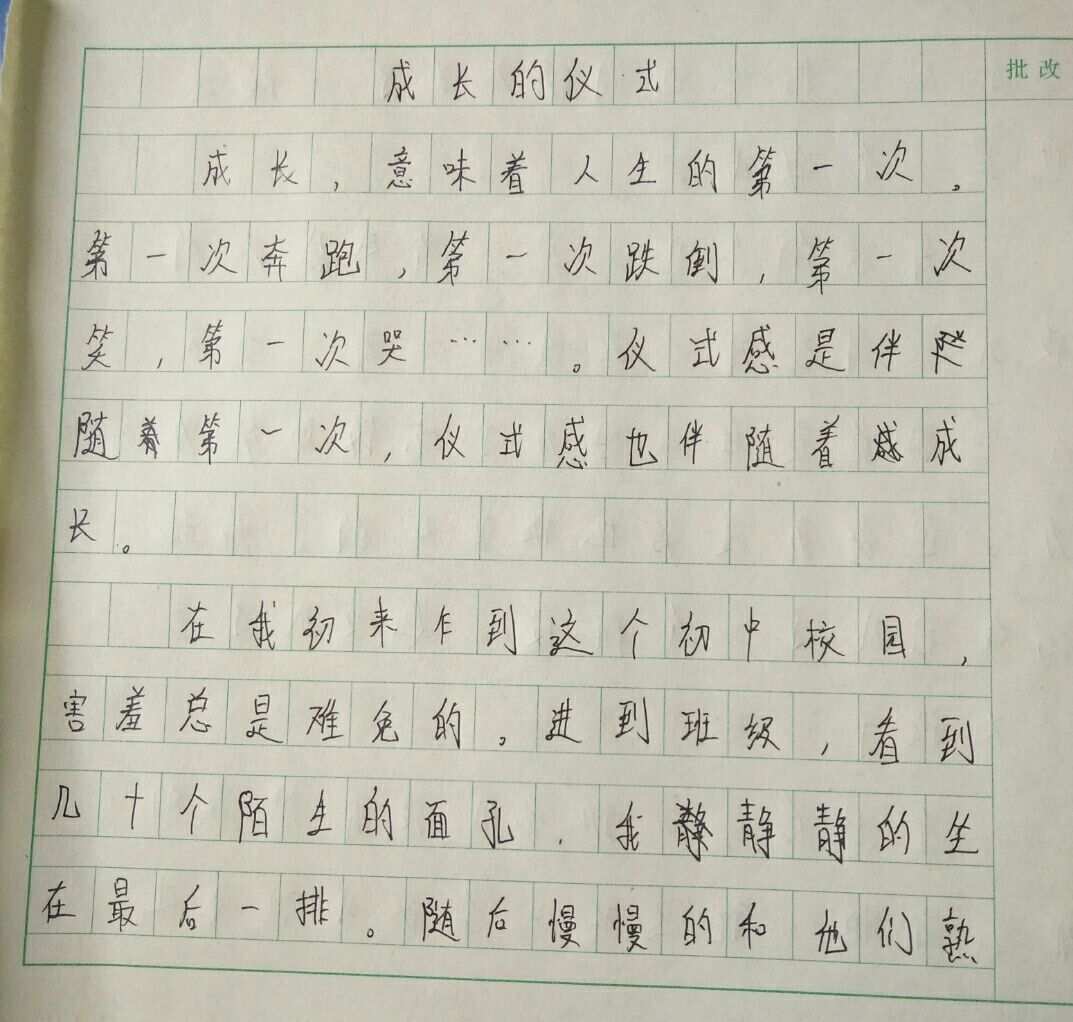 成长的仪式
批改
成长，意味着人生的第一次。
第一次奔跑，第一次跌倒，第一次
笑，第一次哭……。仪式感是伴
随着第一次，仪式感也伴随着成
长。
在我初来乍到这个初中校园，
害羞总是难免的。进到班级，看到
几十个陌生的面孔．我静静的坐
在最后一排。随后慢慢的和他们熟